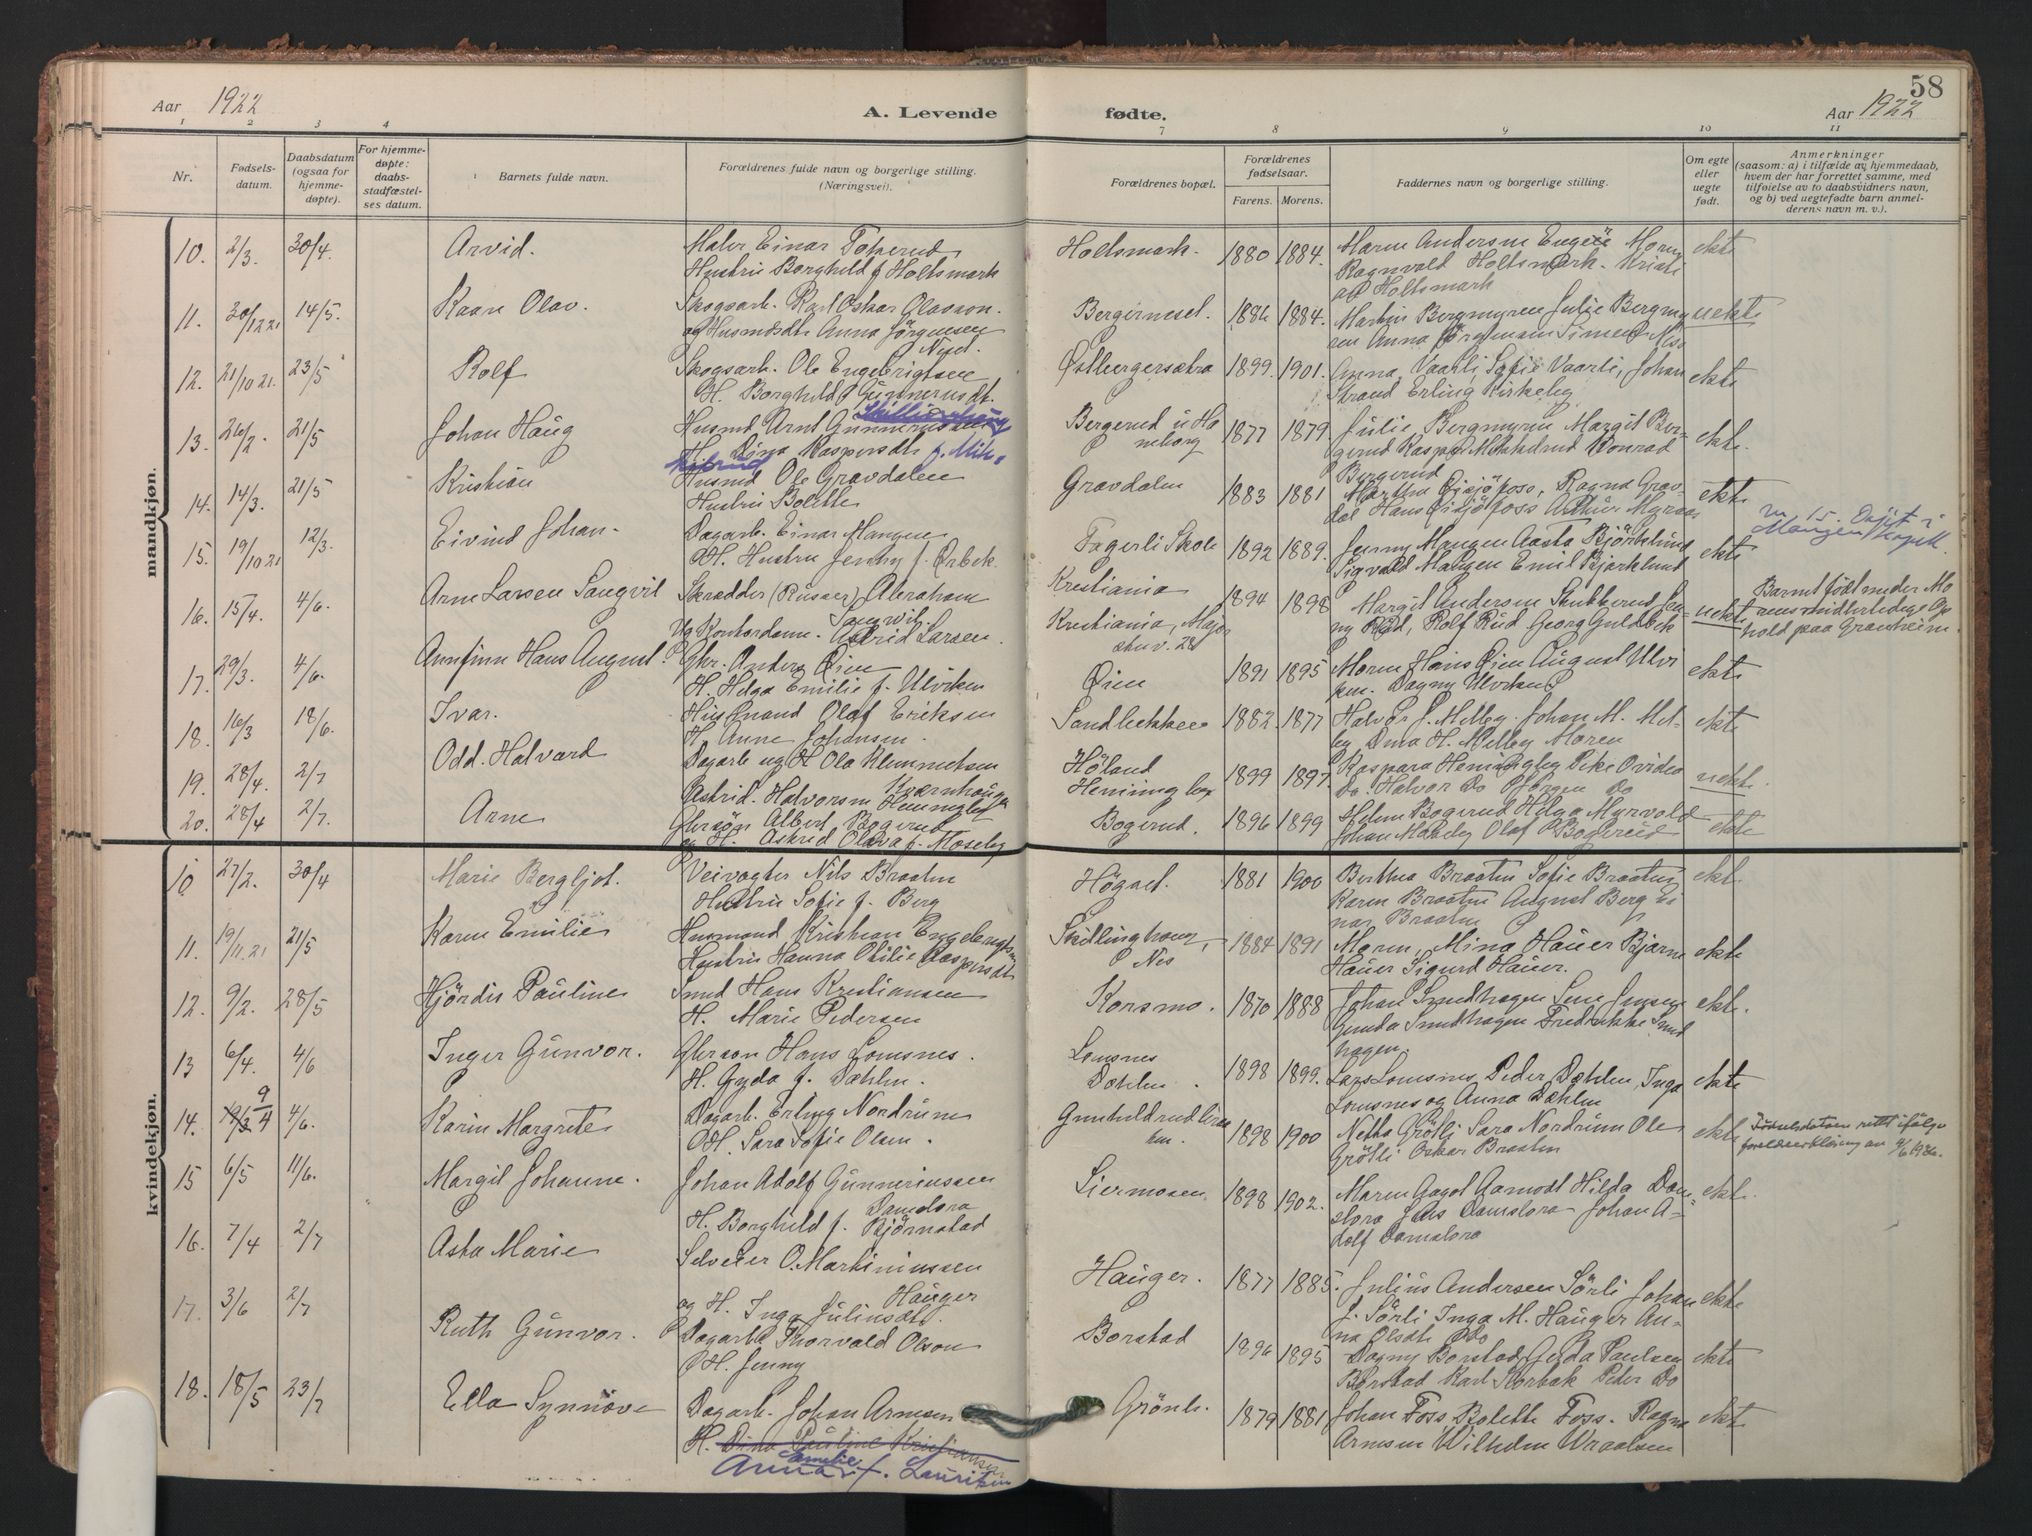 58
Aar 1922
A. Levende
fødte.
Aar 1922
1 2 3 4 7 8 9 10 11
Nr.
Fødsels-
datum.
Daabsdatum
(ogsaa for
hjemme-
døpte).
For hjemme-
døpte:
daabs-
stadfæstel-
ses datum.
Barnets fulde navn.
Forældrenes fulde navn og borgerlige stilling.
(Næringsvei).
Forældrenes bopæl.
Forældrenes
fødselsaar.
Farens. Morens.
Faddernes navn og borgerlige stilling.
Om egte
eller
uegte
født.
Anmerkninger
(saasom: a) i tilfælde av hjemmedaab,
hvem der har forrettet samme, med
tilføielse av to daabsvidners navn,
og b) ved uegtefødte barn anmel-
derens navn m. v.).
mandkjøn.
10. 2/3. 30/4. Arvid. Maler Einar Tokerud
Hustru Borghild f Holtsmark
Holtsmark. 1880 1884. Maren Andersen
Ragnvald Holtsmark. Kristi
an Holtsmark
ekte
11. 30/12 21 14/5. Kaare Olav. Skogsarb. Karl Oskar Olavson.
og Husmdsdt. Anna Jörgensen
1886 1884. Martin Bergmyren Julie Bergmy
ren Anna
uekte
12. 21/10 21. 23/5 Rolf Skogsarb. Ole Engebrigtsen
H. Borghild Gunnerusdt.
Östbergersætra 1899. 1901. Anna Vaarli, Sofie Vaarli, Johan
Strand Erling Kirkeby
ekte
13. 26/2. 21/5 Johan Haug Husmd Arnt Gunneriussen
H. Dina Kaspersdt f. Mik-
Bergerud u Ho
neborg
1877 1879. Julie Bergmyren Margit Ber-
gerud Kasper Konrad
Bergerud
ekte.
14. 14/3. 21/5 Kristian Husmd Ole Gravdalen
Hustru Bolette
Gravdalen 1883 1881 Martha Ragna Grav-
dal Hans
ekte
15. 19/10 21 12/3. Eivind Johan. Dagarb. Einar Mangen
H. Hustru Jenny f. Ørbek.
Fagerli Skole 1892 1889. Jenny Mangen Aasta Björklund
Sigvald Mangen Emil Bjørklund
ekte
nr 15. Døpt i
Mangen kapell.
16. 15/4. 4/6. Arne Larsen Sangvil Skrædder (Russer) Abraham
Ug Kontordame. Astrid Larsen.
Kristiania
Kristiania, Major
stuv. 28
1894 1898 Margit Andersen Stubberud
ny Rud, Rolf Rud Georg Guldbek
uekte
Barnet født under Mo
rens midlertidige Op
hold paa Granheim.
17. 29/3. 4/6. Arnfinn Hans August. Gbr. Anders Øien
H. Helga Emilie f. Ulviken
Øien 1891 1895 Moren Hans Øien August Ulvi
ken. Dagny Ulviken
ekte
18. 16/3 18/6. Ivar. Husmand Olaf Eriksen
H. Anne Johansen.
Sandbekken 1882 1877 Halvor J. Melby. Johan M. Mel-
by Dina H. Melby Moren
ekte
19. 28/4. 2/7 Odd. Halvard Dagarb ug Ola Klemmetsen
Kværnhaugen
Astrid. Halvorsen Henningby
Höland
Henningby
1899 1897. Kaspara Henningby
Do. Halvor Do Jörgen Do
uekte.
20. 28/4 2/7. Arne Gbrsön Albert Bogerud
og H. Astrid Olava f. Moseby
Bogerud. 1896 1899 Helene Bogerud Helga Myrvold
Johan Moseby Olaf Bogerud
ekte
kvindekjøn.
10 27/2. 30/4 Marie Bergljot. Veivogter Nils Braaten
Hustru Sofie f. Berg
Högset. 1881 1900 Berthea Braaten Sofie Braaten
Karen Braaten August Berg Ei
nar Braaten
ekte.
11. 19/11. 21 21/5 Karen Emilie Husmand Kristian Engebrigtsen
Hustru Hanna Otilie Kaspersdt
Skillinghaug,
Nes
1884 1891 Moren, Mina Hauer Bjarne
Hauer Sigurd Hauer.
ekte
12. 9/2. 28/5 Hjördis Pauline Smed Hans Kristiansen
H. Marie Pedersen
Korsmo. 1870 1888 Johan Smedhagen Lene Jensen
Gunda Smedhagen Fredrikke Smed
hagen.
ekte.
13 6/4. 4/6 Inger Gunvor. Gbrson Hans Lomsnes.
H. Gyda f. Dæhlen.
Lomsnes
Dæhlen.
1898 1899. Lars Lomsnes Peder Dæhlen, Inga
Lomsnes og Anna Dæhlen
ekte
14. 9/4 4/6. Karin Margrete Dagarb. Erling Nordrum
H. Sara Sofie Olsen.
1898 1900 Netha Grötli Sara Nordrum Ole
Grötli Oskar Braaten
ekte
Fødselsdatoen rettet ifølge
foreldreerklæring av
15 6/5 11/6. Margit Johanne. Johan Adolf Gunneriussen
Damslora
H. Borghild f. Bjørnstad
Siermosen 1898 1902. Moren Aagot Aamodt Hilda Dam-
slora Jens Damslora Johan A-
dolf Damslora
ekte.
16. 7/4 2/7 Asta Marie Selveier O. Martiniussen
Hauger
og H. Inga Juliusdt.
Hauger. 1877 1885. Julius Andersen Sörli Johan
J. Sörli Inga M. Hauger An-
na Olsdt. Do
ekte
17. 3/6 2/7 Ruth Gunvor. Dagarb Thorvald Olson
H. Jenny
Borstad 1896 1895 Dagny Borstad, Gyda Paulsen
Borstad Karl Storbæk Peder Do
ekte
18. 18/5 23/7 Ella Synnöve Dagarb. Johan Arnesen
H. Dina Pauline Kristiansen
Amelie
Anna f. Lauritsen
Grönl. 1879 1881 Johan Foss Bolette Foss. Ragna
Arnesen Wilhelm Wraalsen
ekte